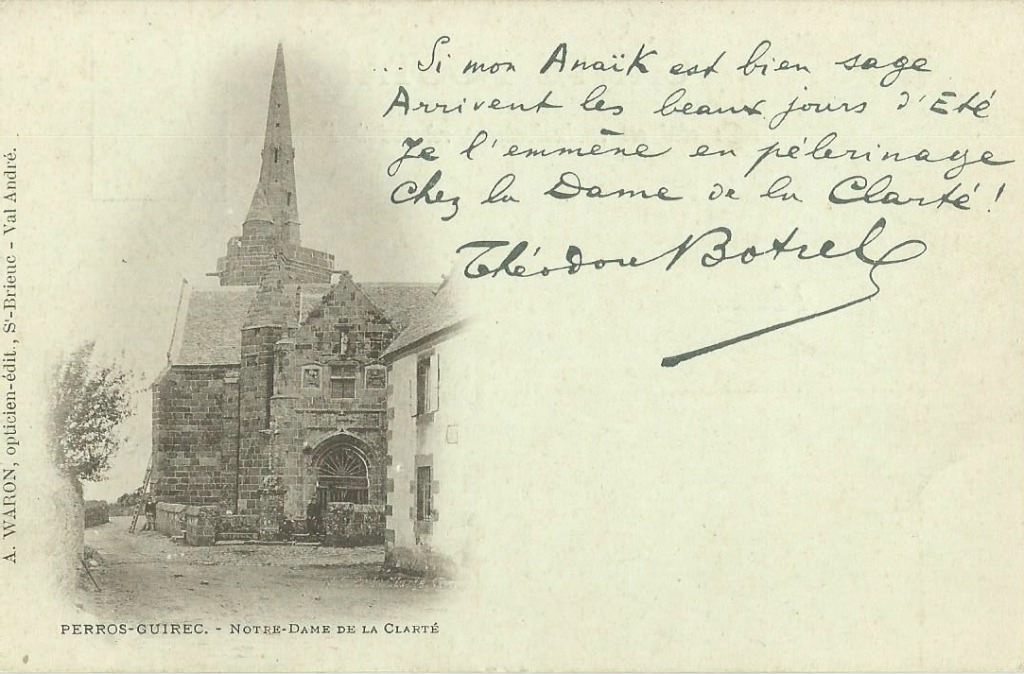 ... Si mon Anaïk est bien sage
Arrivent les beaux jours d'Eté
Je l'emmène en pélerinage
Chez la Dame de la Clarté !
Théodore Botrel
A. WARON, opticien-édit., St-Brieuc - Val André.
PERROS-GUIREC. - NOTRE-DAME DE LA CLARTÉ